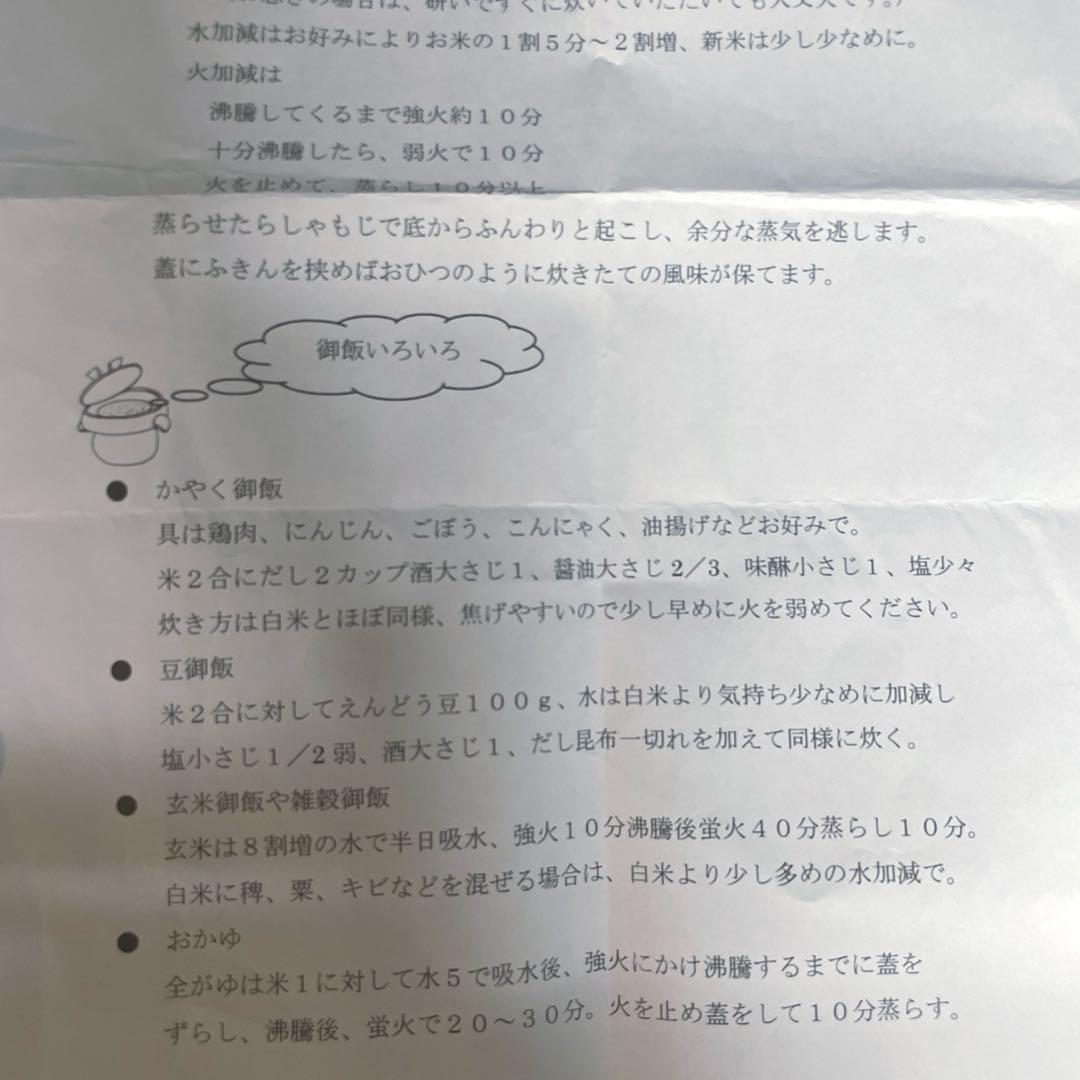 場合は、研いですぐに炊いていただいても大丈夫です。）
水加減はお好みによりお米の１割５分～２割増、新米は少し少なめに。
火加減は
沸騰してくるまで強火約１０分
十分沸騰したら、弱火で１０分
火を止めて、蒸らし１０分以上
蒸らせたらしゃもじで底からふんわりと起こし、余分な蒸気を逃します。
蓋にふきんを挟めばおひつのように炊きたての風味が保てます。
御飯いろいろ
● かやく御飯
具は鶏肉、にんじん、ごぼう、こんにゃく、油揚げなどお好みで。
米２合にだし２カップ酒大さじ１、醤油大さじ2／3、味醂小さじ１、塩少々
炊き方は白米とほぼ同様、焦げやすいので少し早めに火を弱めてください。
● 豆御飯
米２合に対してえんどう豆１００ｇ、水は白米より気持ち少なめに加減し
塩小さじ１／2弱、酒大さじ１、だし昆布一切れを加えて同様に炊く。
● 玄米御飯や雑穀御飯
玄米は８割増の水で半日吸水、強火１０分沸騰後蛍火４０分蒸らし１０分。
白米に稗、粟、キビなどを混ぜる場合は、白米より少し多めの水加減で。
● おかゆ
全がゆは米１に対して水５で吸水後、強火にかけ沸騰するまでに蓋を
ずらし、沸騰後、蛍火で２０～３０分。火を止め蓋をして１０分蒸らす。